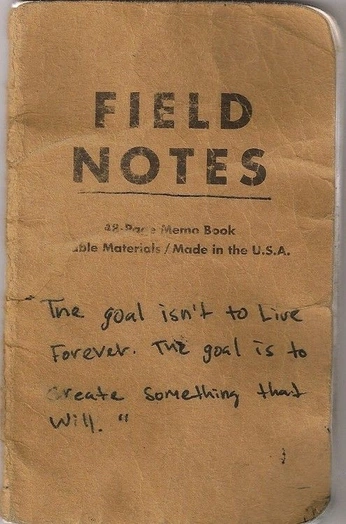 FIELD
NOTES
48-Page Memo Book
able Materials / Made in the U.S.A.
"The goal isn't to Live
Forever. The goal is to
Create something that
Will. "